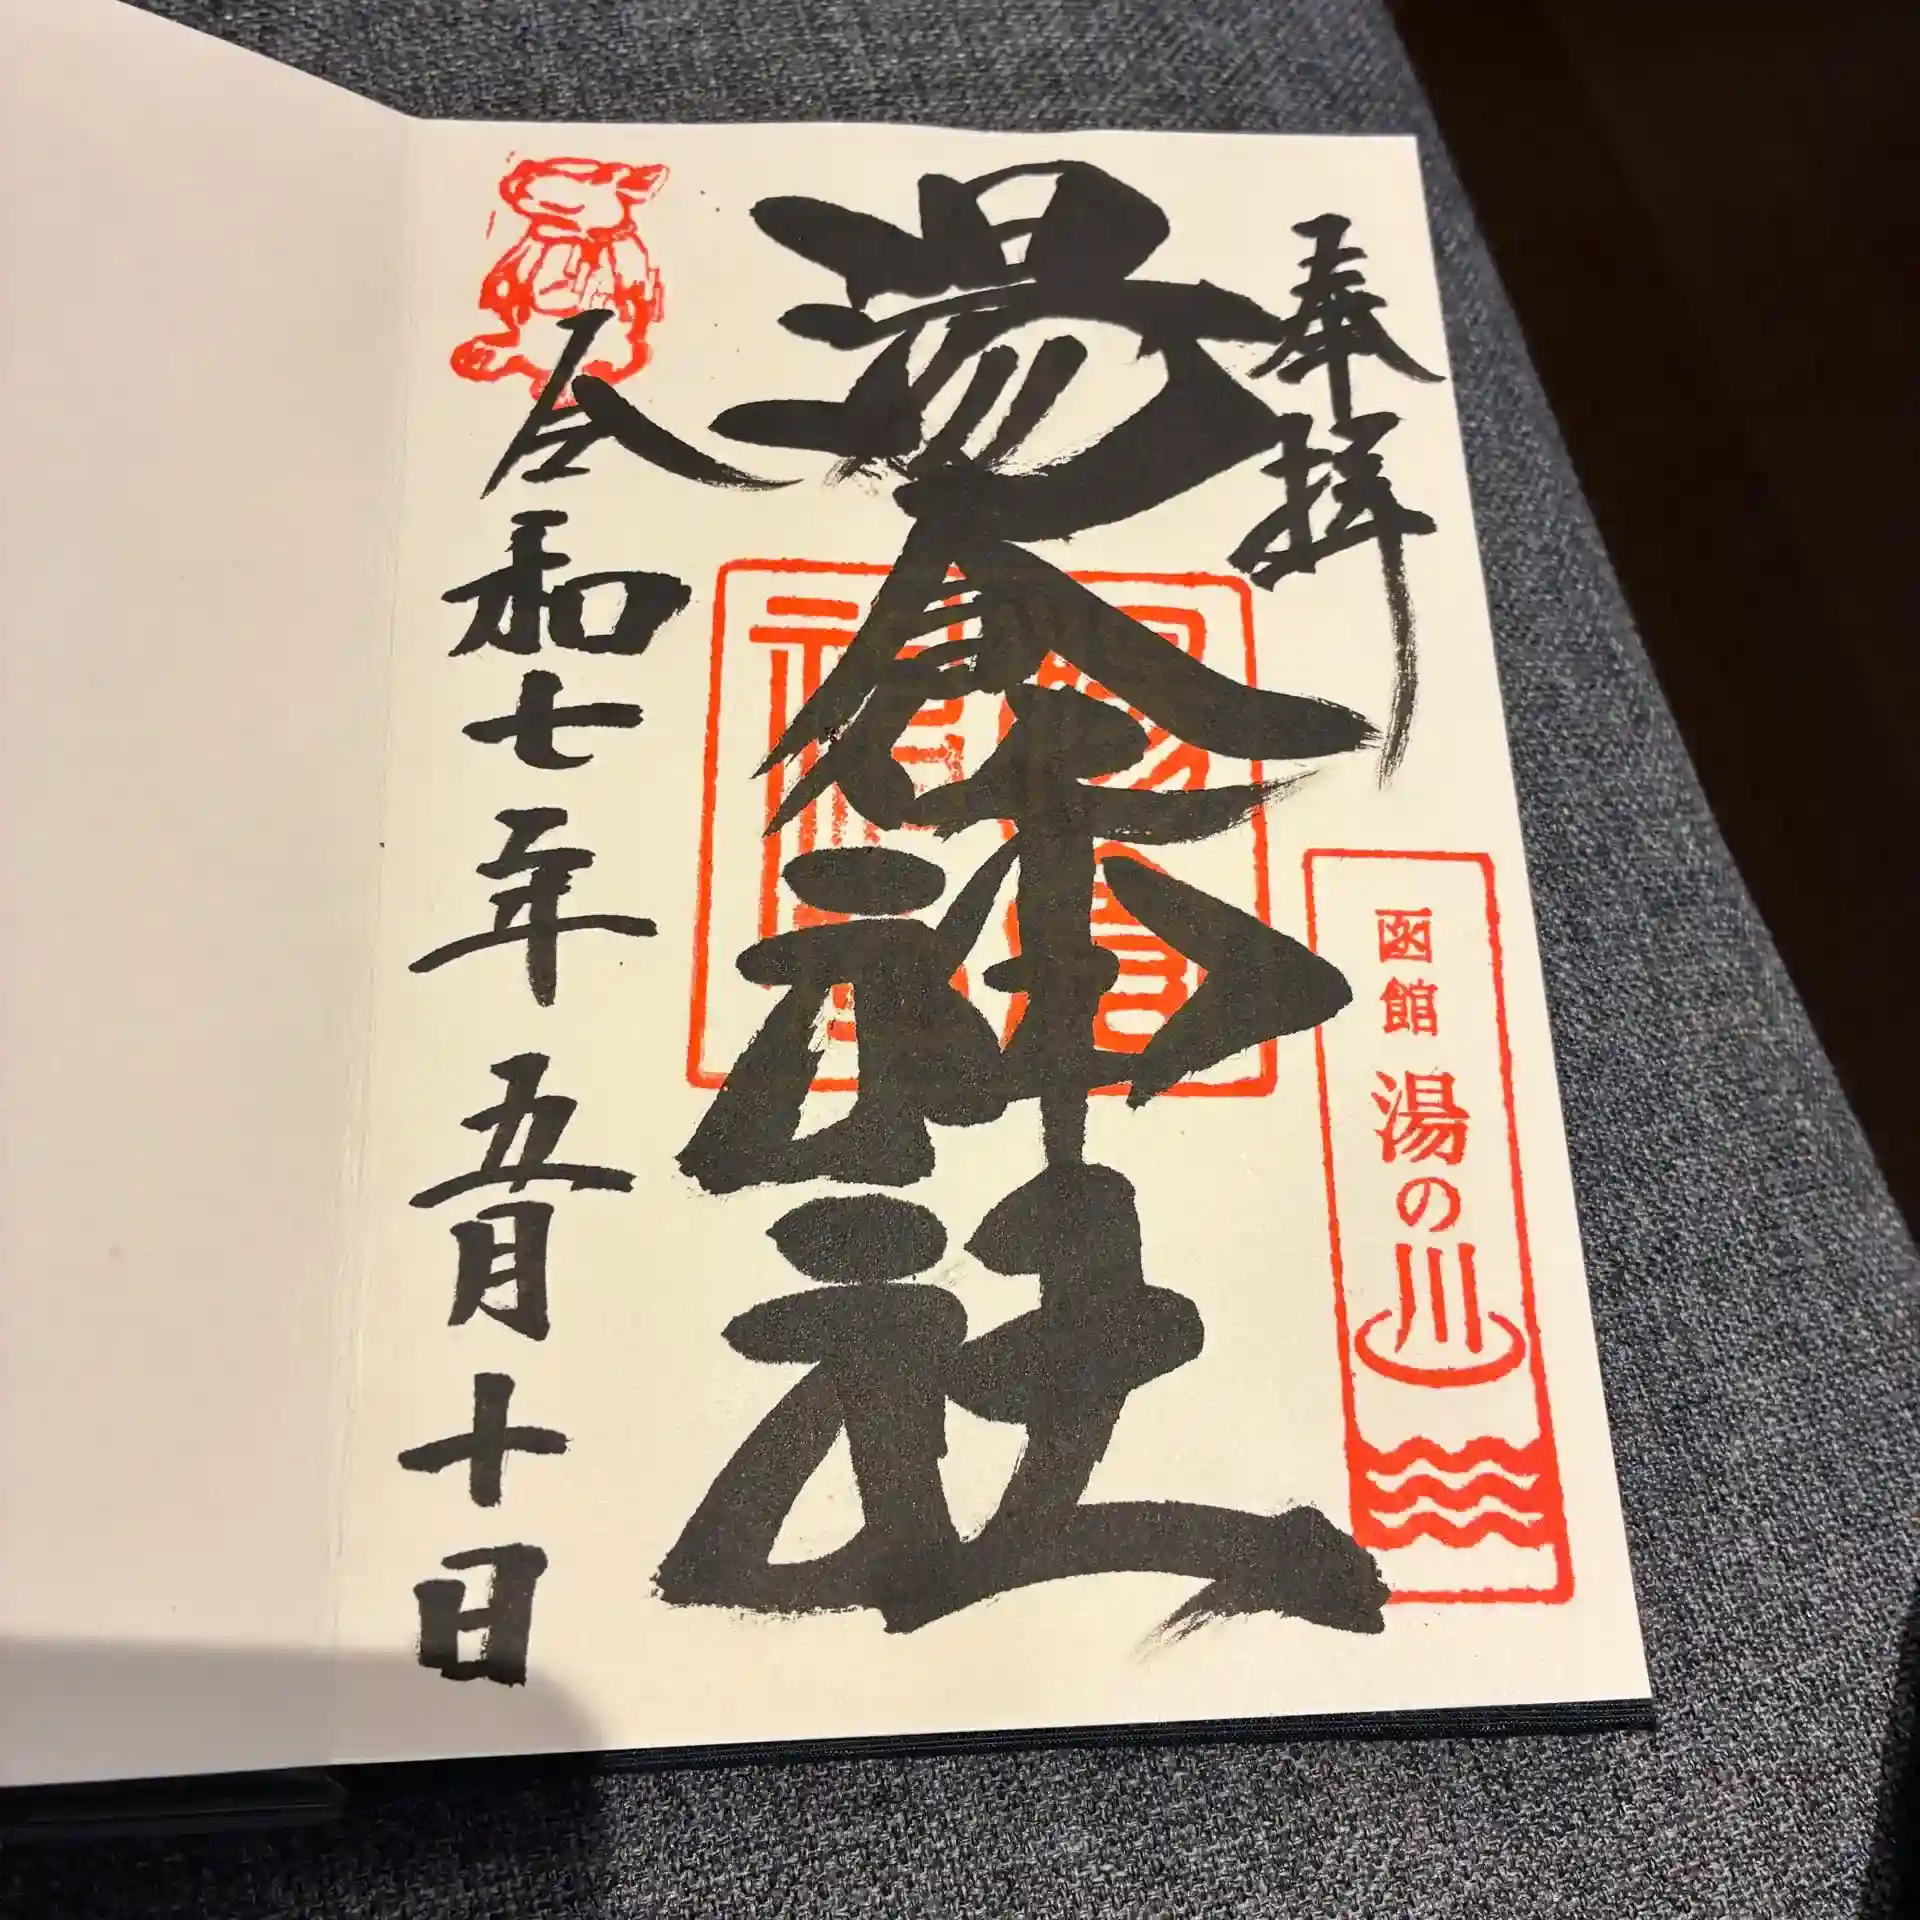 奉拝
函館 湯の川
湯倉神社
令和七年 五月十日